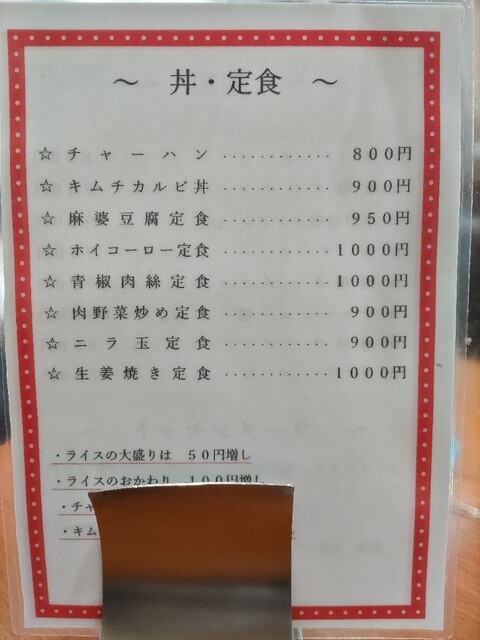 ～ 丼・定食 ～
☆ チャーハン ............ 800円
☆ キムチカルビ丼 ............ 900円
☆ 麻婆豆腐定食 ............ 950円
☆ ホイコーロー定食 ............ 1000円
☆ 青椒肉絲定食 ............ 1000円
☆ 肉野菜炒め定食 ............ 900円
☆ ニラ玉定食 ............ 900円
☆ 生姜焼き定食 ............ 1000円
・ライスの大盛りは 50円増し
・ライスのおかわり 100円増し
・チャ
・キム